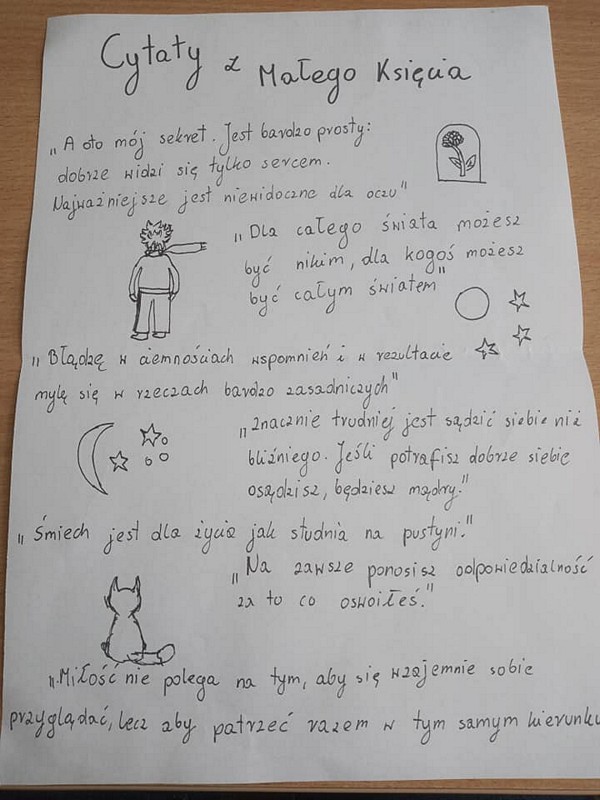 Cytaty z Małego Księcia
„A oto mój sekret. Jest bardzo prosty:
dobrze widzi się tylko sercem.
Najważniejsze jest niewidoczne dla oczu"
„Dla całego świata możesz
być nikim, dla kogoś możesz
być całym światem"
„Błądzę w ciemnościach wspomnień i w rezultacie
mylę się w rzeczach bardzo zasadniczych"
„Znacznie trudniej jest sądzić siebie niż
bliźniego. Jeśli potrafisz dobrze siebie
osądzisz, będziesz mądry."
„Śmiech jest dla życia jak studnia na pustyni."
„Na zawsze ponosisz odpowiedzialność
za to co oswoiłeś."
„Miłość nie polega na tym, aby się wzajemnie sobie
przyglądać, lecz aby patrzeć razem w tym samym kierunku